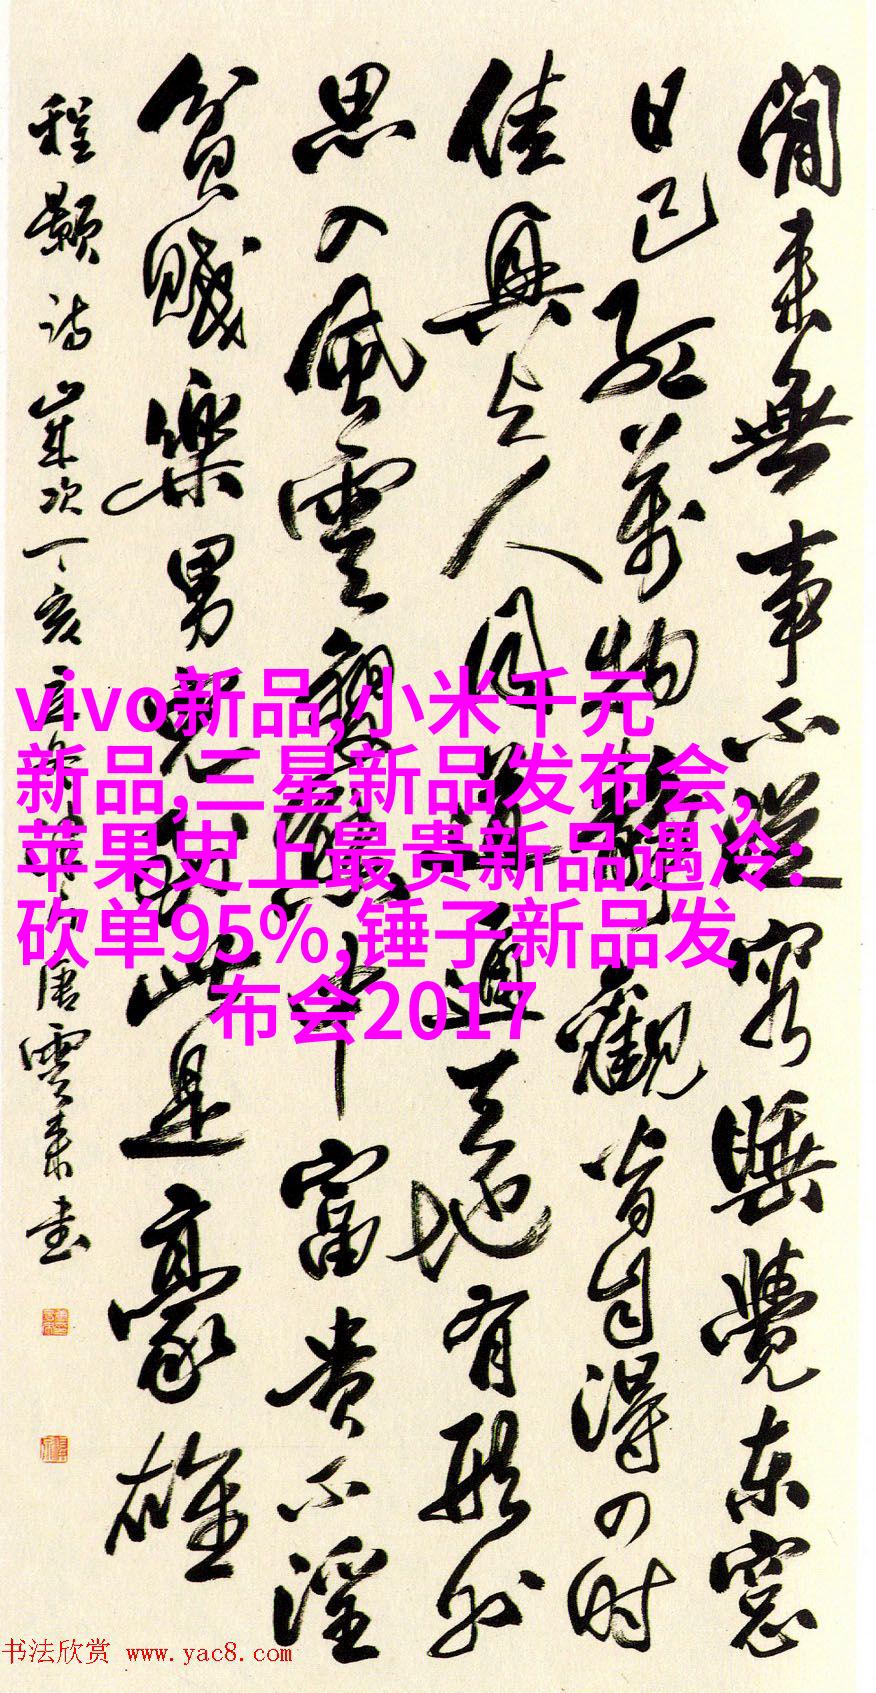 閒来無事不從容睡覺东窗
日已紅萬物靜觀皆自得四时
佳興与人同道通天地有形外
思入風雲變態中富貴不淫
貧賤樂男兒到此是豪雄
程顥诗歲次丁亥唐雲来书
vivo新品,小米千元
新品,三星新品发布会,
苹果史上最贵新品遇冷:
砍单95%,锤子新品发
布会2017
书法欣赏 www.yac8.com